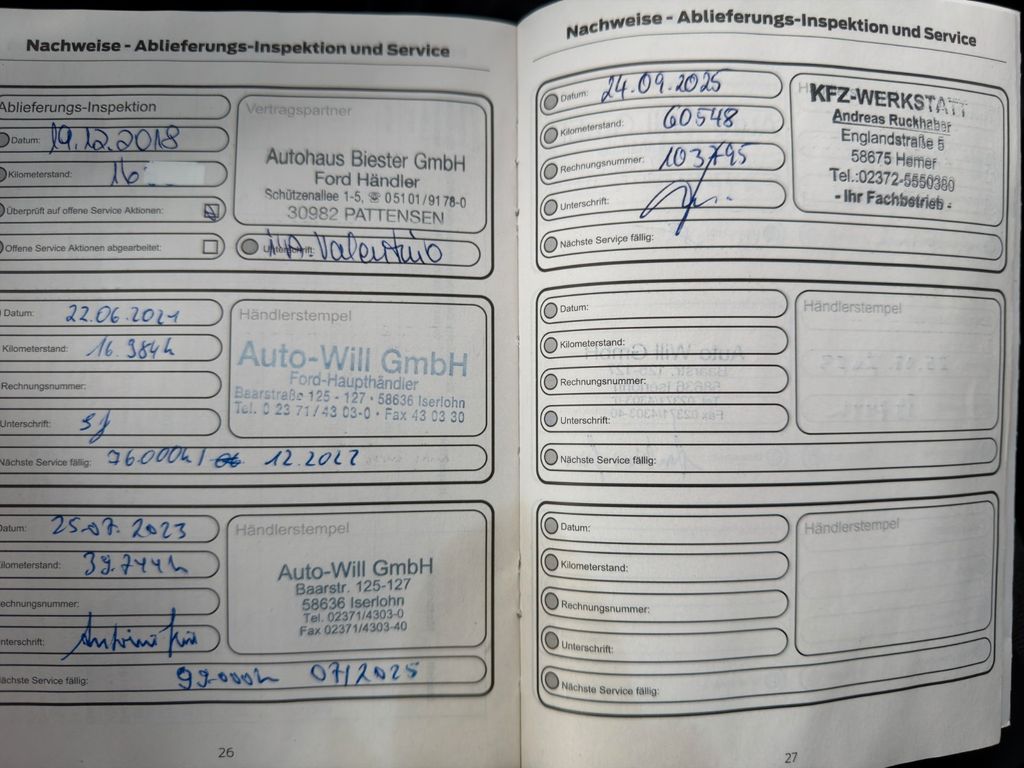 Nachweise - Ablieferungs-Inspektion und Service
Ablieferungs-Inspektion
Datum: 19.12.2018
Kilometerstand: 16
Überprüft auf offene Service Aktionen:
Offene Service Aktionen abgearbeitet:
Vertragspartner
Autohaus Biester GmbH
Ford Händler
Schützenallee 1-5, ☎ 05101/9178-0
30982 PATTENSEN
Unterschrift: Valentino
Datum: 22.06.2021
Kilometerstand: 16.384
Rechnungsnummer:
Unterschrift:
Händlerstempel
Auto-Will GmbH
Ford-Haupthändler
Baarstraße 125 - 127 · 58636 Iserlohn
Tel. 0 23 71 / 43 03-0 · Fax 43 03 30
Nächste Service fällig: 76000 / 12.2022
Datum: 25.07.2023
Kilometerstand: 39.744
Rechnungsnummer:
Unterschrift:
Händlerstempel
Auto-Will GmbH
Baarstr. 125-127
58636 Iserlohn
Tel. 02371/4303-0
Fax 02371/4303-40
Nächste Service fällig: 99.000 07/2025
26
Nachweise - Ablieferungs-Inspektion und Service
Datum: 24.09.2025
Kilometerstand: 60548
Rechnungsnummer: 103795
Unterschrift:
Nächste Service fällig:
KFZ-WERKSTATT
Andreas Ruckhaber
Englandstraße 5
58675 Hemer
Tel.:02372-5550380
- Ihr Fachbetrieb -
Datum:
Kilometerstand:
Rechnungsnummer:
Unterschrift:
Nächste Service fällig:
Händlerstempel
Datum:
Kilometerstand:
Rechnungsnummer:
Unterschrift:
Nächste Service fällig:
Händlerstempel
27